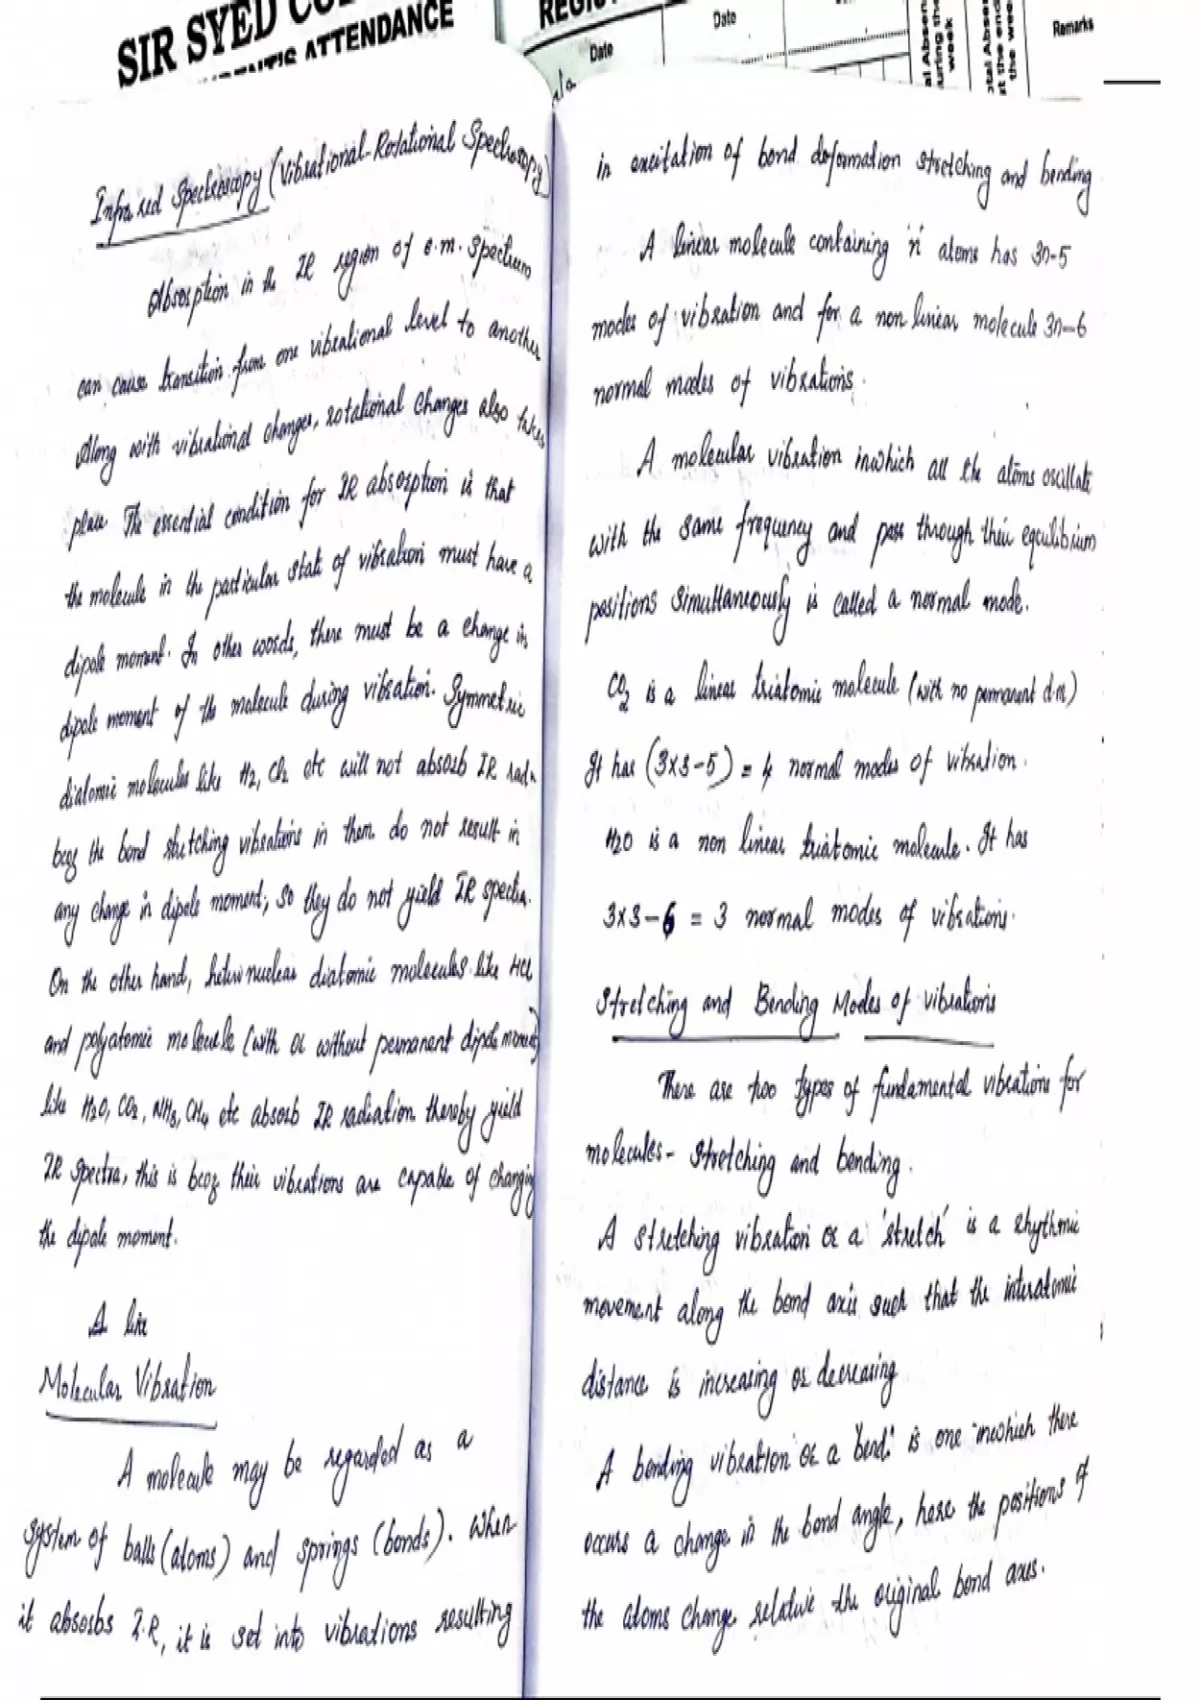 SIR SYED CO
ATTENDANCE
REGIS
Date
Date
al Absen
during the
week
otal Absen
at the end
the wee
Remarks
Infra red Spectroscopy (Vibrational-Rotational Spectroscopy)
Absorption in the IR region of e.m. Spectrum
can cause transition from one vibrational level to another
Along with vibrational changes, rotational changes also takes
place The essential condition for IR absorption is that
the molecule in the particular state of vibration must have a
dipole moment. In other words, there must be a change in
dipole moment of the molecule during vibration. Symmetric
diatomic molecules like H2, Cl2 etc will not absorb IR rad.
bcoz the bond stretching vibrations in them do not result in
any change in dipole moment; so they do not yield IR spectra.
On the other hand, hetero nuclear diatomic molecules like HCl
and polyatomic molecule (with or without permanent dipole moment)
like H2O, CO2, NH3, CH4 etc absorb IR radiation thereby yield
IR Spectra, this is bcoz their vibrations are capable of changing
the dipole moment.
A
Molecular Vibration
A molecule may be regarded as a
system of balls (atoms) and springs (bonds). When
it absorbs I.R, it is set into vibrations resulting
in excitation of bond deformation stretching and bending
A linear molecule containing 'n' atoms has 3n-5
modes of vibration and for a non linear molecule 3n-6
normal modes of vibrations.
A molecular vibration inwhich all the atoms oscillate
with the same frequency and pass through their equilibrium
positions simultaneously is called a normal mode.
CO2 is a linear triatomic molecule (with no permanent d.m)
It has (3x3-5) = 4 normal modes of vibration.
H2O is a non linear triatomic molecule. It has
3x3-6 = 3 normal modes of vibrations.
Stretching and Bending Modes of vibrations
There are two types of fundamental vibrations for
molecules - stretching and bending.
A stretching vibration or a 'stretch' is a rhythmic
movement along the bond axis such that the interatomic
distance is increasing or decreasing
A bending vibration or a 'bend' is one inwhich there
occurs a change in the bond angle, here the positions of
the atoms change relative the original bond axes.